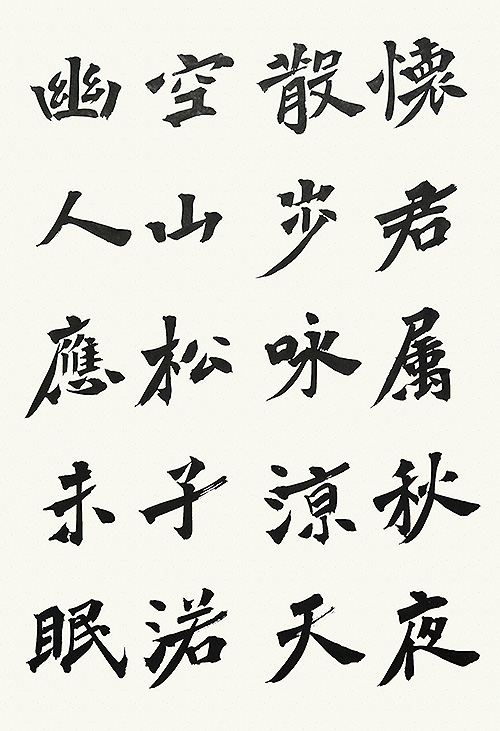 懷君属秋夜
散步咏涼天
空山松子落
幽人應未眠